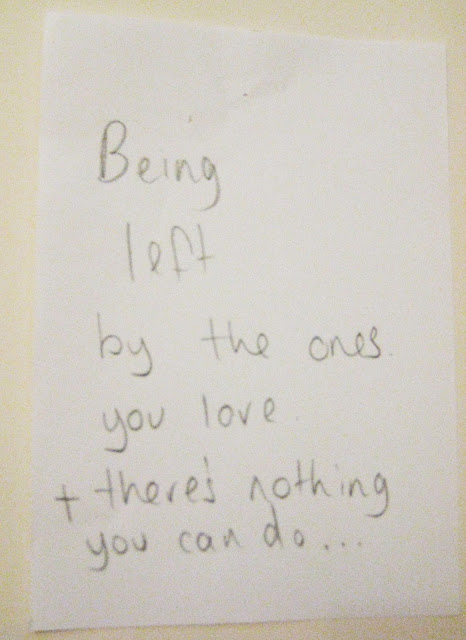 Being
left
by the ones.
you love.
+ there's nothing
you can do...